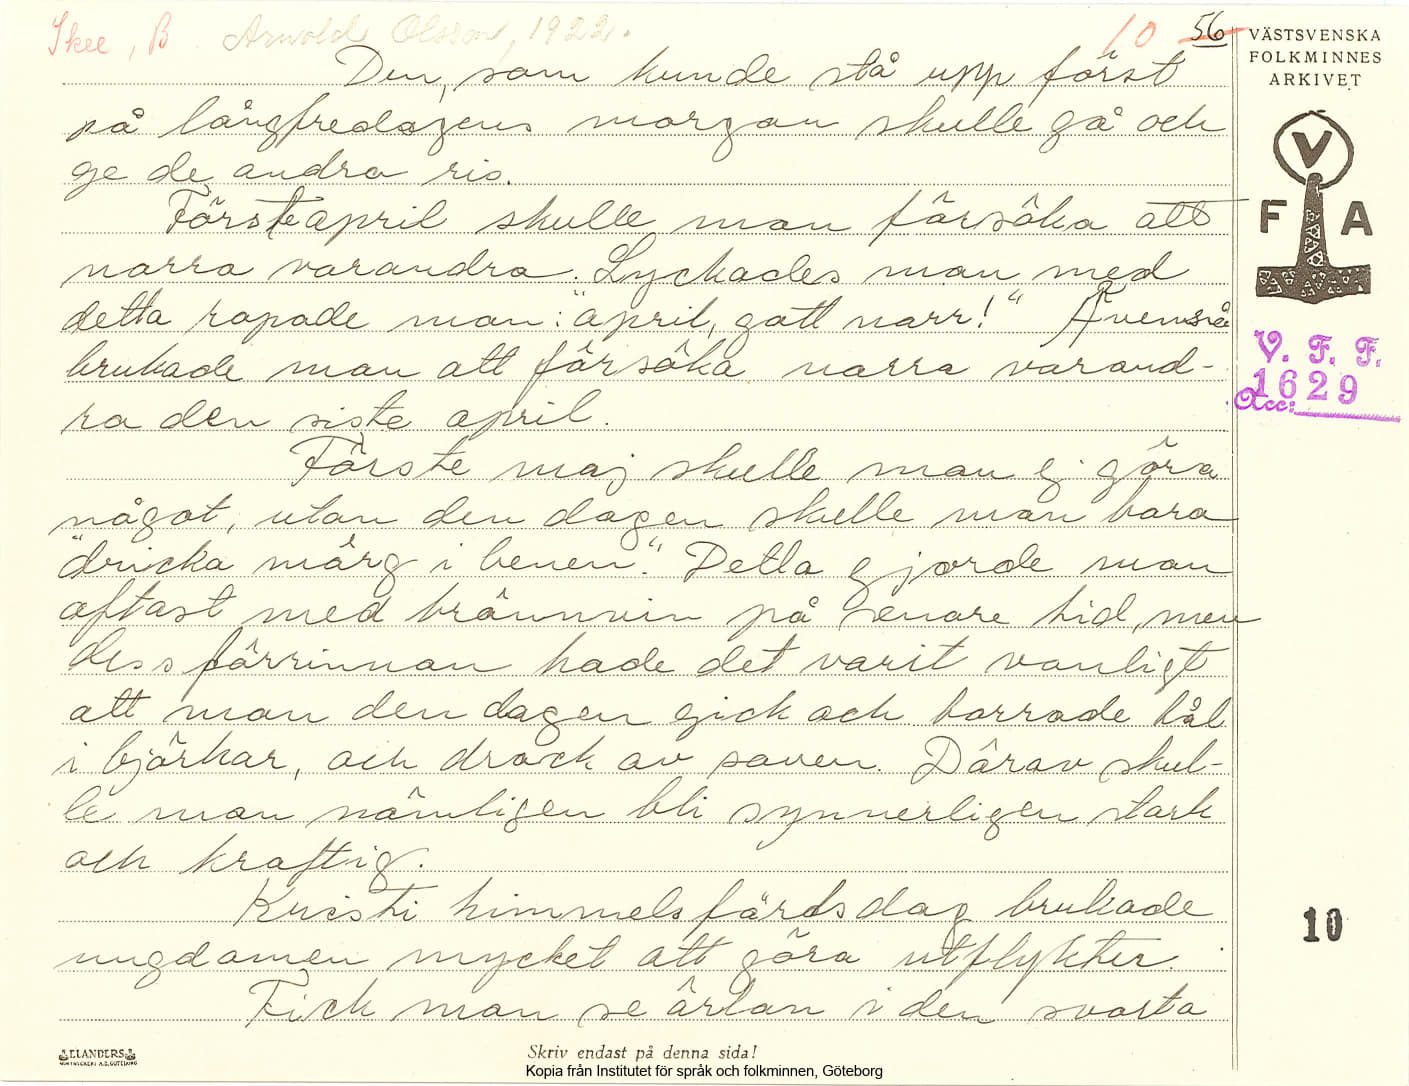 Skee, B Arnold Olsson, 1922.
10 56
VÄSTSVENSKA
FOLKMINNES
ARKIVET
Den, som kunde stå upp först
på långfredagens morgon skulle gå och
ge de andra ris.
Förste april skulle man försöka att
narra varandra. Lyckades man med
detta ropade man: "april, gott narr!" Ävenså
brukade man att försöka narra varand-
ra den siste april.
Förste maj skulle man ej göra
något, utan den dagen skulle man bara
"dricka märg i benen". Detta gjorde man
oftast med brännvin på senare tid, men
dess förrinnan hade det varit vanligt
att man den dagen gick och borrade hål
i björkar, och drack av saven. Därav skul-
le man nämligen bli synnerligen stark
och kraftig.
Kristi himmelsfärdsdag brukade
ungdomen mycket att göra utflykter.
Fick man se ärlan i den svarta
V
F A
V. F. F.
1629
Acc:
10
ELANDERS
Skriv endast på denna sida!
Kopia från Institutet för språk och folkminnen, Göteborg